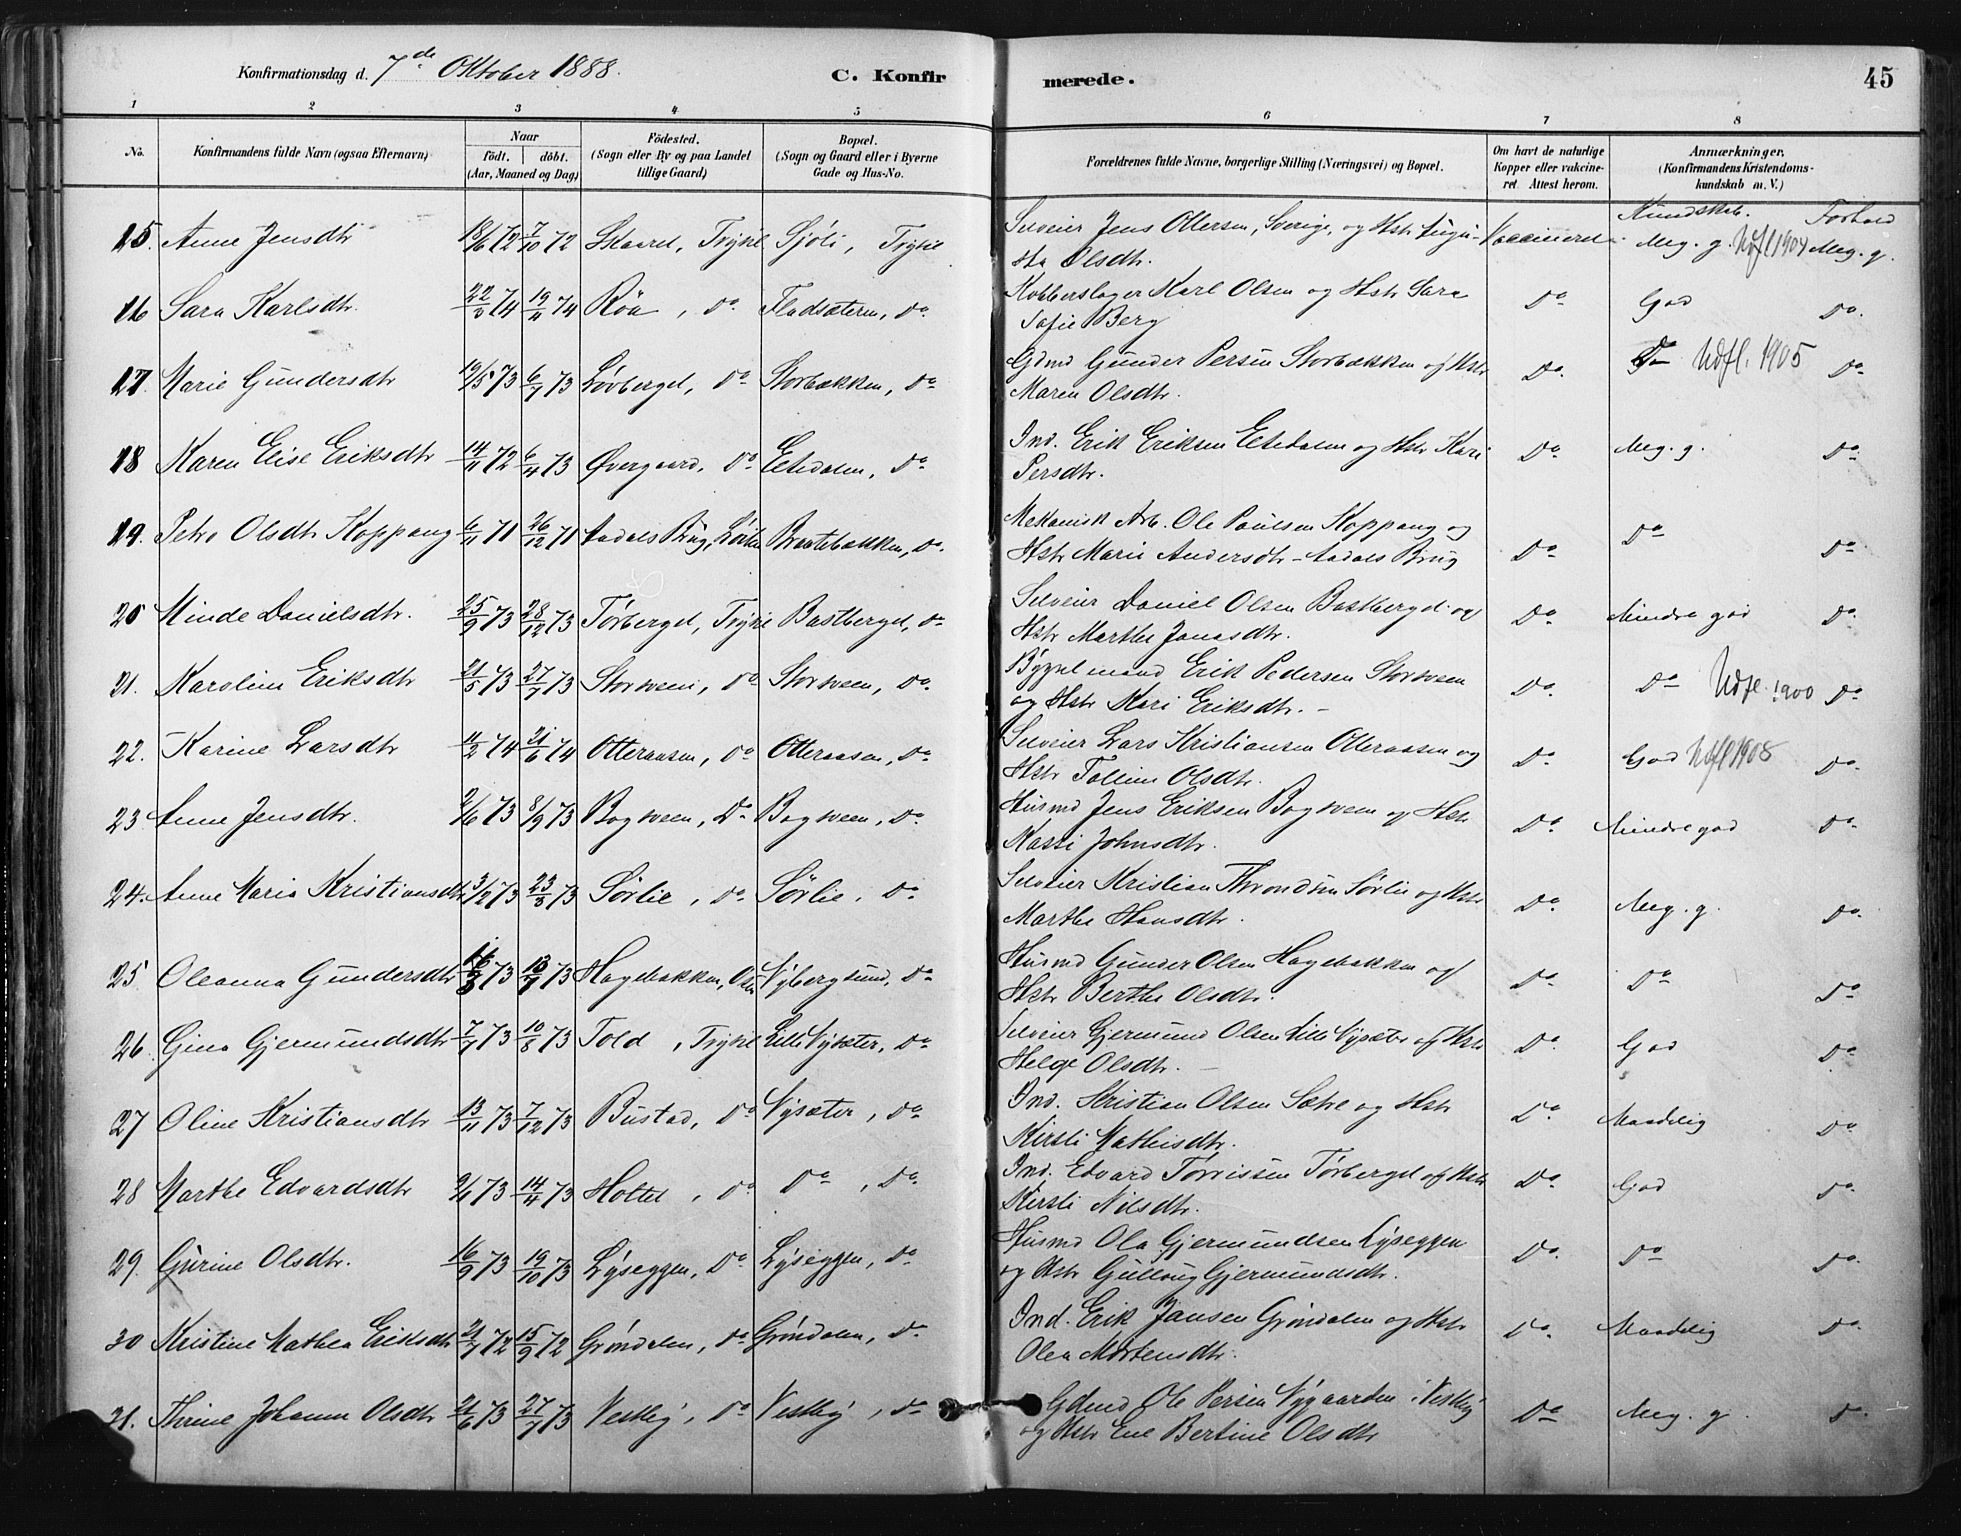 Konfirmationsdag d. 7de Oktober 1888. C. Konfirmerede. 45
1 2 3 4 5 6 7 8
No. Konfirmandens fulde Navn (ogsaa Efternavn) Naar født. døbt. (Aar, Maaned og Dag) Födested. (Sogn eller By og paa Landet tillige Gaard) Bopæl. (Sogn og Gaard eller i Byerne Gade og Hus-No. Forældrenes fulde Navne, borgerlige Stilling (Næringsvei) og Bopæl. Om havt de naturlige Kopper eller vakcineret. Attest herom. Anmærkninger, (Konfirmandens Kristendomskundskab m. V.)
Kundskab. Forhold
15. Anne Jensdtr 18/6 72 7/10 72 Trysil Sjöli, Trysil Selveier Jens Ottersen, Sverige, og Hstr Augusta Olsdtr. Vaccineret Meg. g. Udfl 1904 Meg. g.
16 Sara Karlsdtr. 74 19/4 74 Röa, Do Fladsæteren, Do. Kobberslager Karl Olsen og Hstr Sara Sofie Berg Do God Do.
17. Marie Gundersdtr 19/5 73 6/7 73 Lövberget, Do Storbækken, Do Gdmd Gunder Persen Storbækken og Hstr Maren Olsdtr. Do. Do Udfl. 1905 Do
18 Karen Elise Eriksdtr 14/11 72 6/4 73 Övergaard, Do Eltdalen, Do Ind. Erik Eriksen Eltdalen og Hstr Kari Persdtr. Do Meg. g. Do
19. Petra Olsdtr Koppang 6/11 71 26/12 71 Aadals Brug, Löiten Braatebækken, Do. Mekanisk Arb. Ole Paulsen Koppang og Hstr Marie Andersdtr - Aadals Brug Do Do Do
20 Minda Danielsdtr. 25/9 73 28/12 73 Törberget, Trysil Bastberget, Do Selveier Daniel Olsen Bastberget og Hstr Marthe Jonasdtr. Do Mindre god Do.
21. Karoline Eriksdtr 21/5 73 27/7 73 Storsveen, Do Storsveen, Do. Bygselmand Erik Pedersen Storsveen og Hstr Kari Eriksdtr. - Do. Do Udfl. 1900 Do
22. Karine Larsdtr 11/2 74 21/6 74 Otteraasen, Do Otteraasen, Do. Selveier Lars Kristiansen Otteraasen og Hstr Olsdtr. Do. God Udfl 1908 Do.
23 Anne Jensdtr. 2/6 73 8/9 73 Bogsveen, Do Bogsveen, Do. Husmd Jens Eriksen Bogsveen og Hstr Kasti Johnsdtr. Do Mindre god Do.
24. Anne Maria Kristiansdtr 3/2 73 23/3 73 Sörlie, Do. Sörlie, Do. Selveier Kristian Throndsen Sörlie og Hstr Marthe Hansdtr. Do. Meg. g. Do.
25 Oleanna Gundersdtr 73 13/7 73 Hagebakken, Osen Nybergsund, Do Husmd Gunder Olsen Hagebakken og Hstr Berthe Olsdtr. Do. Do Do
26 Gina Gjermundsdtr 7/7 73 10/8 73 Told, Trysil Lille Nysæter, Do Selveier Gjermund Olsen Lille Nysæter og Hstr Helge Olsdtr. - Do. God Do.
27 Oline Kristiansdtr 13/11 73 7/12 73 Bustad, Do Nysæter, Do Ind. Kristian Olsen Sætre og Hstr Kirsti Mathisdtr. Do. Maadelig Do.
28 Marthe Edvardsdtr 2/1 73 14/4 73 Holtet, Do Do, Do. Ind. Edvard Törrissen Törberget og Hstr Kirsti Nilsdtr. Do. God Do.
29. Gurine Olsdtr. 16/9 73 19/10 73 Lyseggen, Do Lyseggen, Do Husmd Ola Gjermundsen Lyseggen og Hstr Gullaug Gjermundsdtr. Do. Do Do.
30 Kristine Mathea Eriksdtr 21/7 72 15/9 72 Gröndalen, Do Gröndalen, Do. Ind. Erik Jansen Gröndalen og Hstr Olea Mortensdtr. Do. Maadelig Do.
31. Thrine Johanne Olsdtr 21/6 73 27/7 73 Vestby, Do Vestby, Do Gdmd Ole Persen Nygaarden i Vestby og Hstr Ene Bertine Olsdtr Do Meg. g. Do.